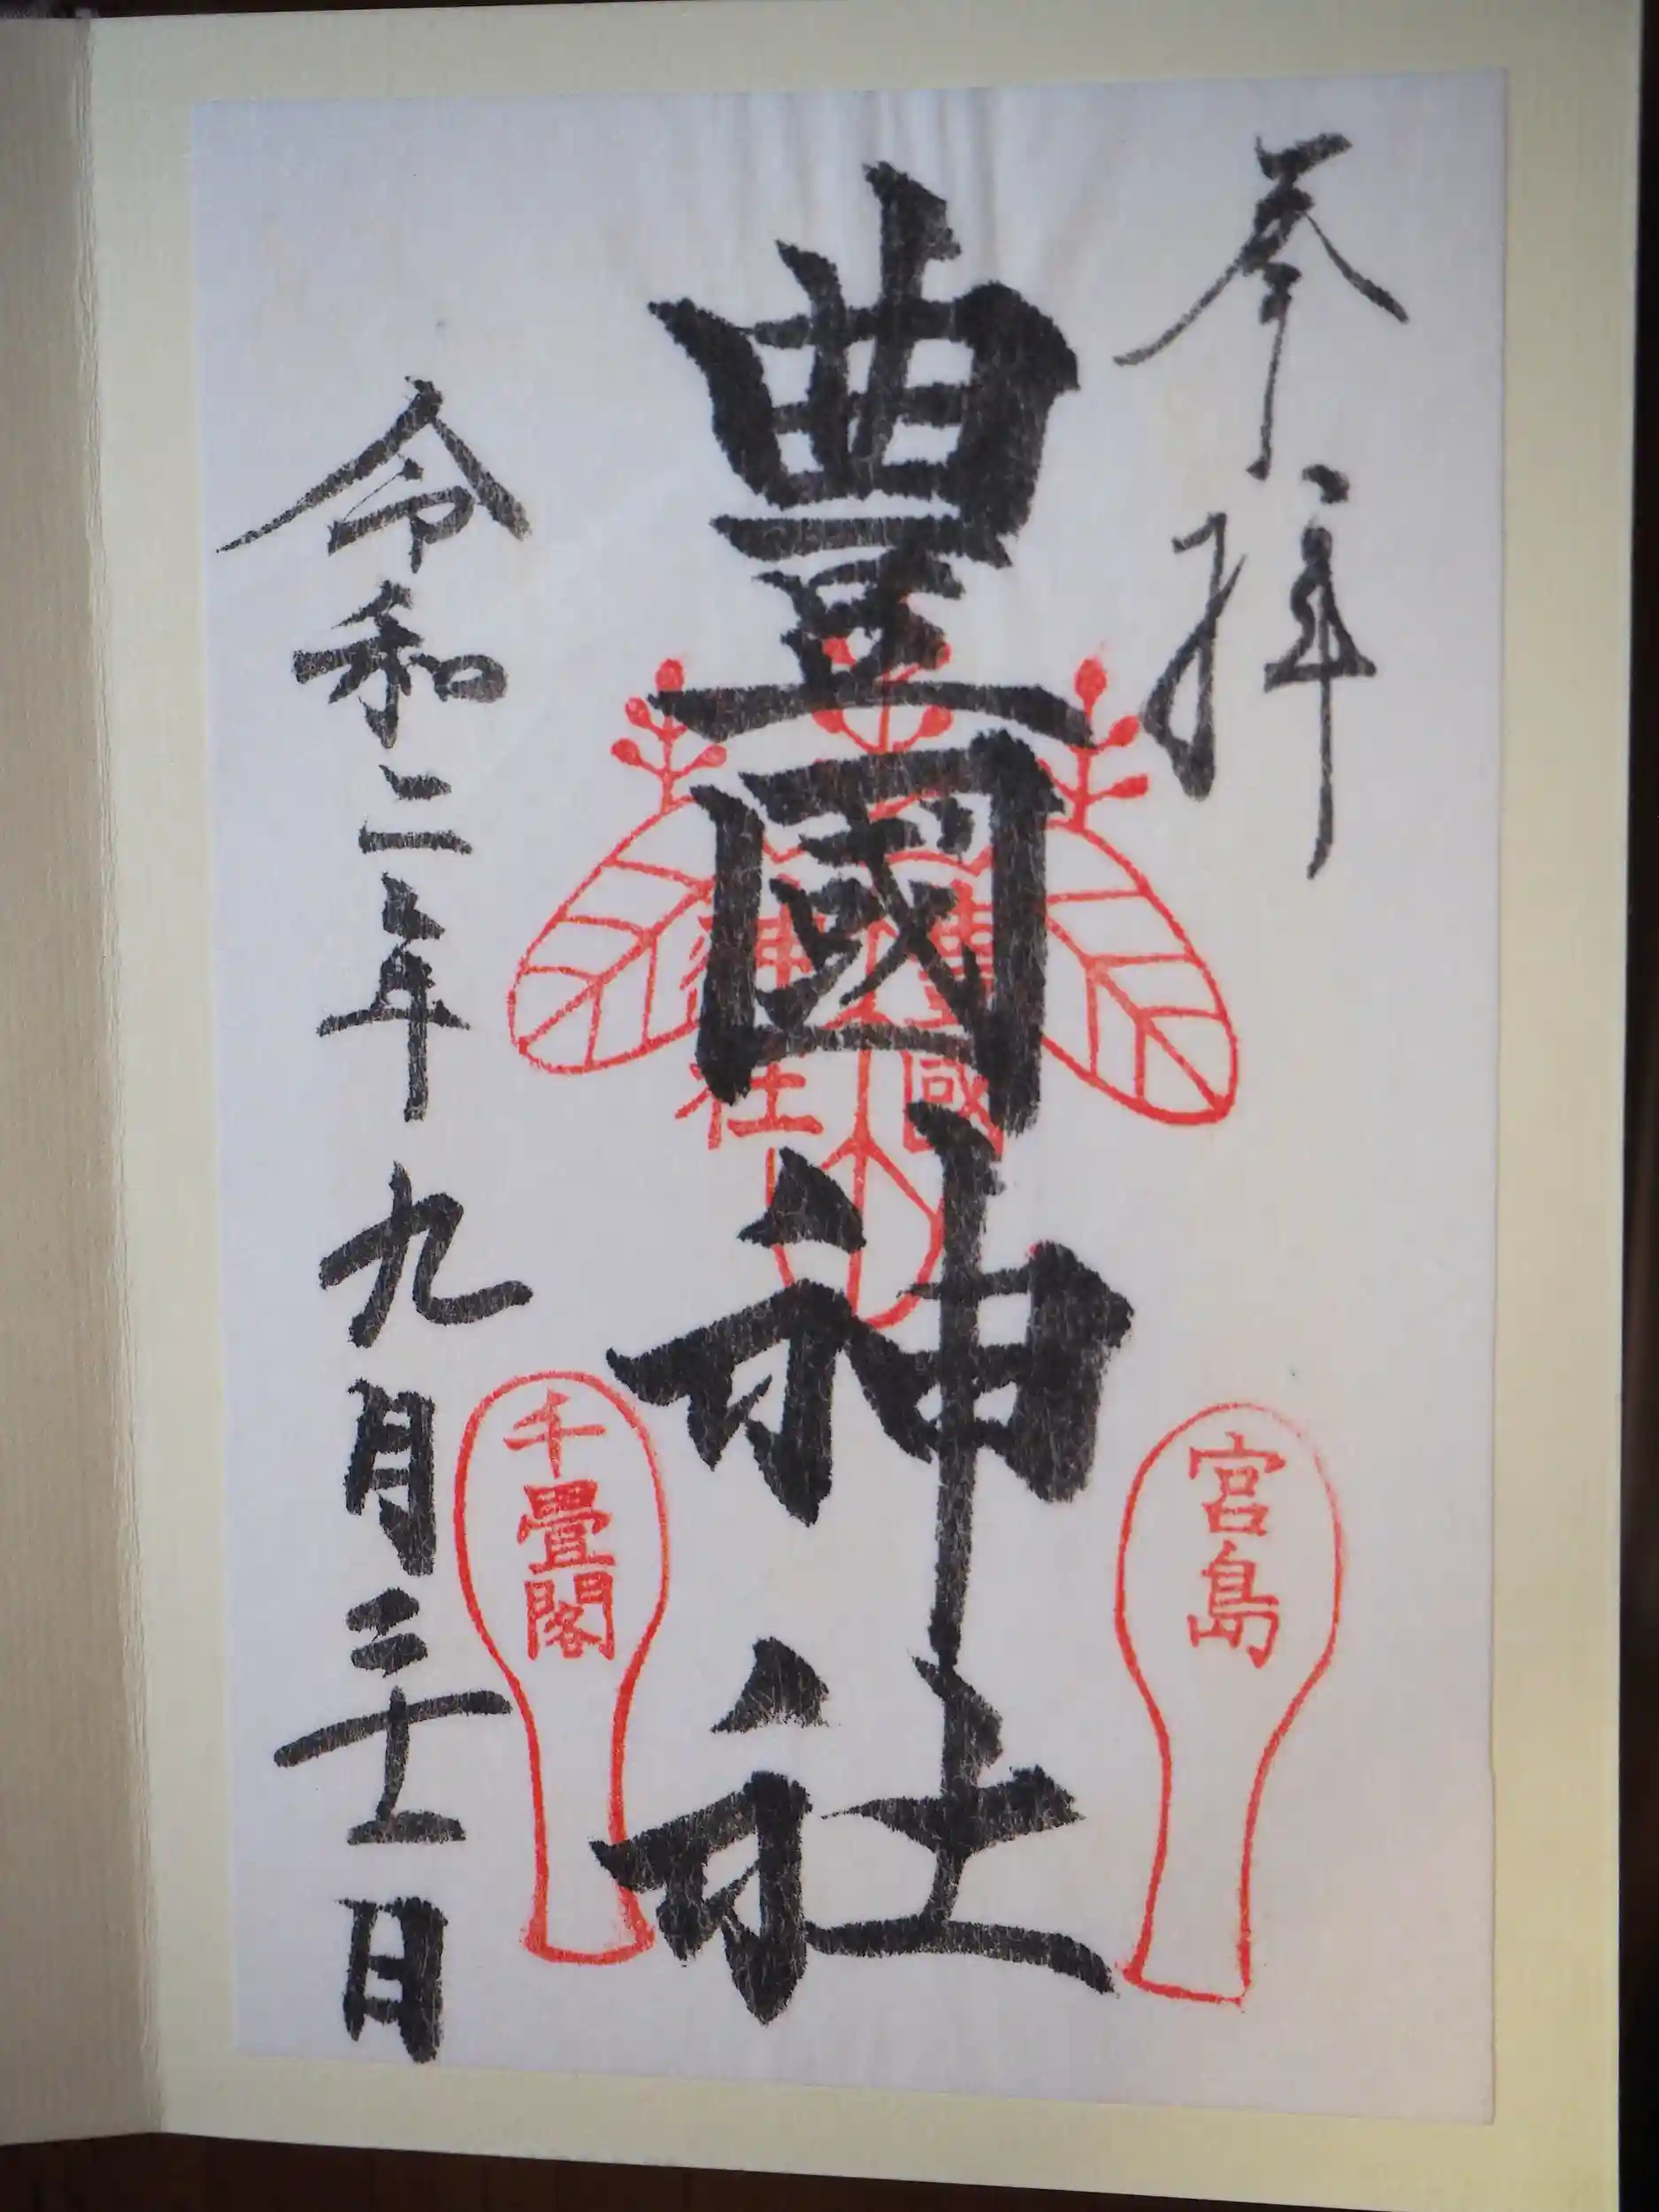 奉拝
豊國神社
豊國
神社
宮島
千畳閣
令和二年九月二十一日